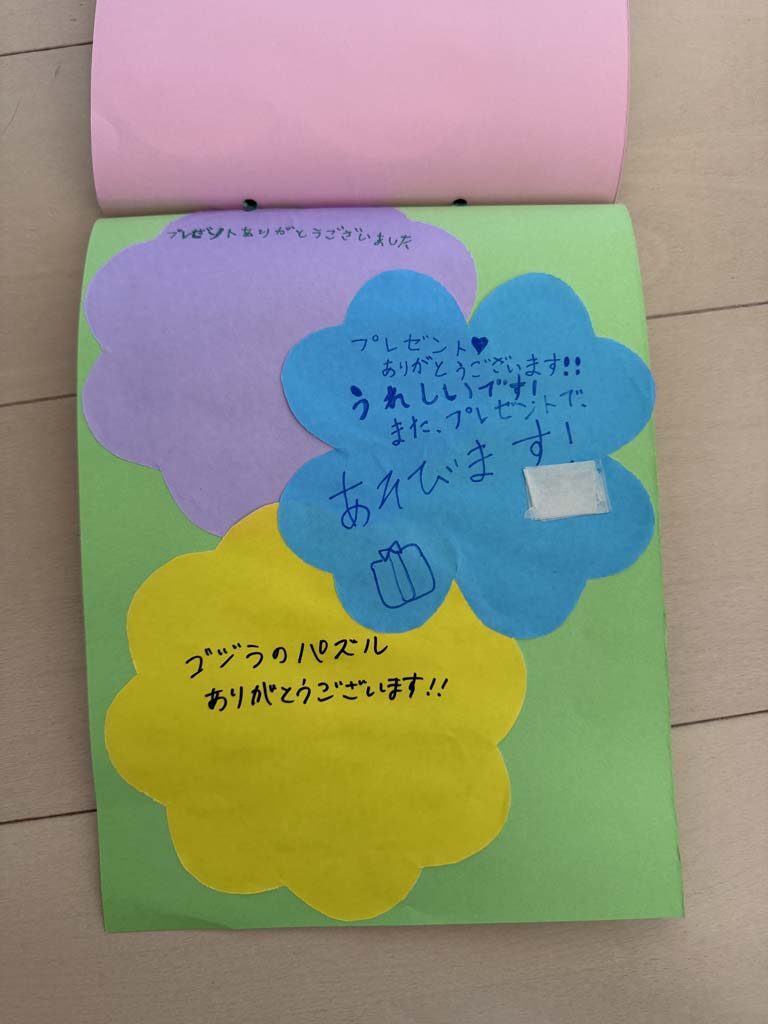 プレゼントありがとうございました
プレゼント♥
ありがとうございます!!
うれしいです!
また、プレゼントで、
あそびます!
ゴジラのパズル
ありがとうございます!!